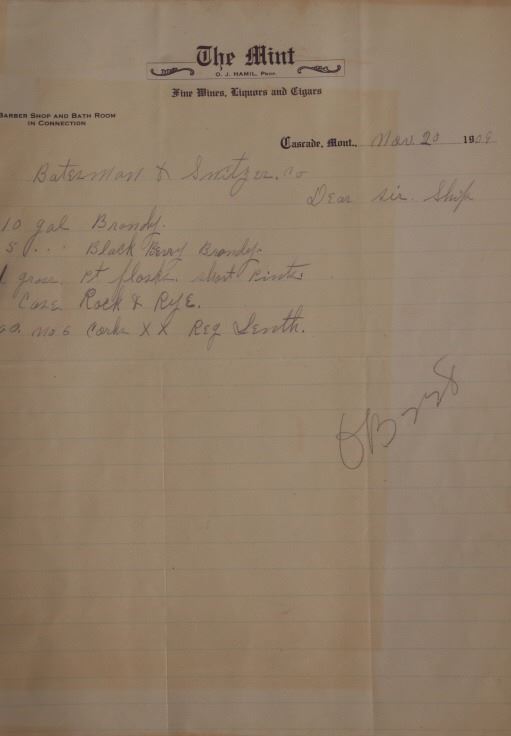 The Mint
O. J. HAMIL, PROP.
Fine Wines, Liquors and Cigars
BARBER SHOP AND BATH ROOM
IN CONNECTION
Cascade, Mont., Nov. 20 1909
Baterman & Switzer. Co
Dear sir. Ship
10 gal Brandy.
5 ... Black Berry Brandy.
1 gross. Pt flasks. short Pints.
Case Rock & Rye.
No 6 Corks XX Reg Lenth.